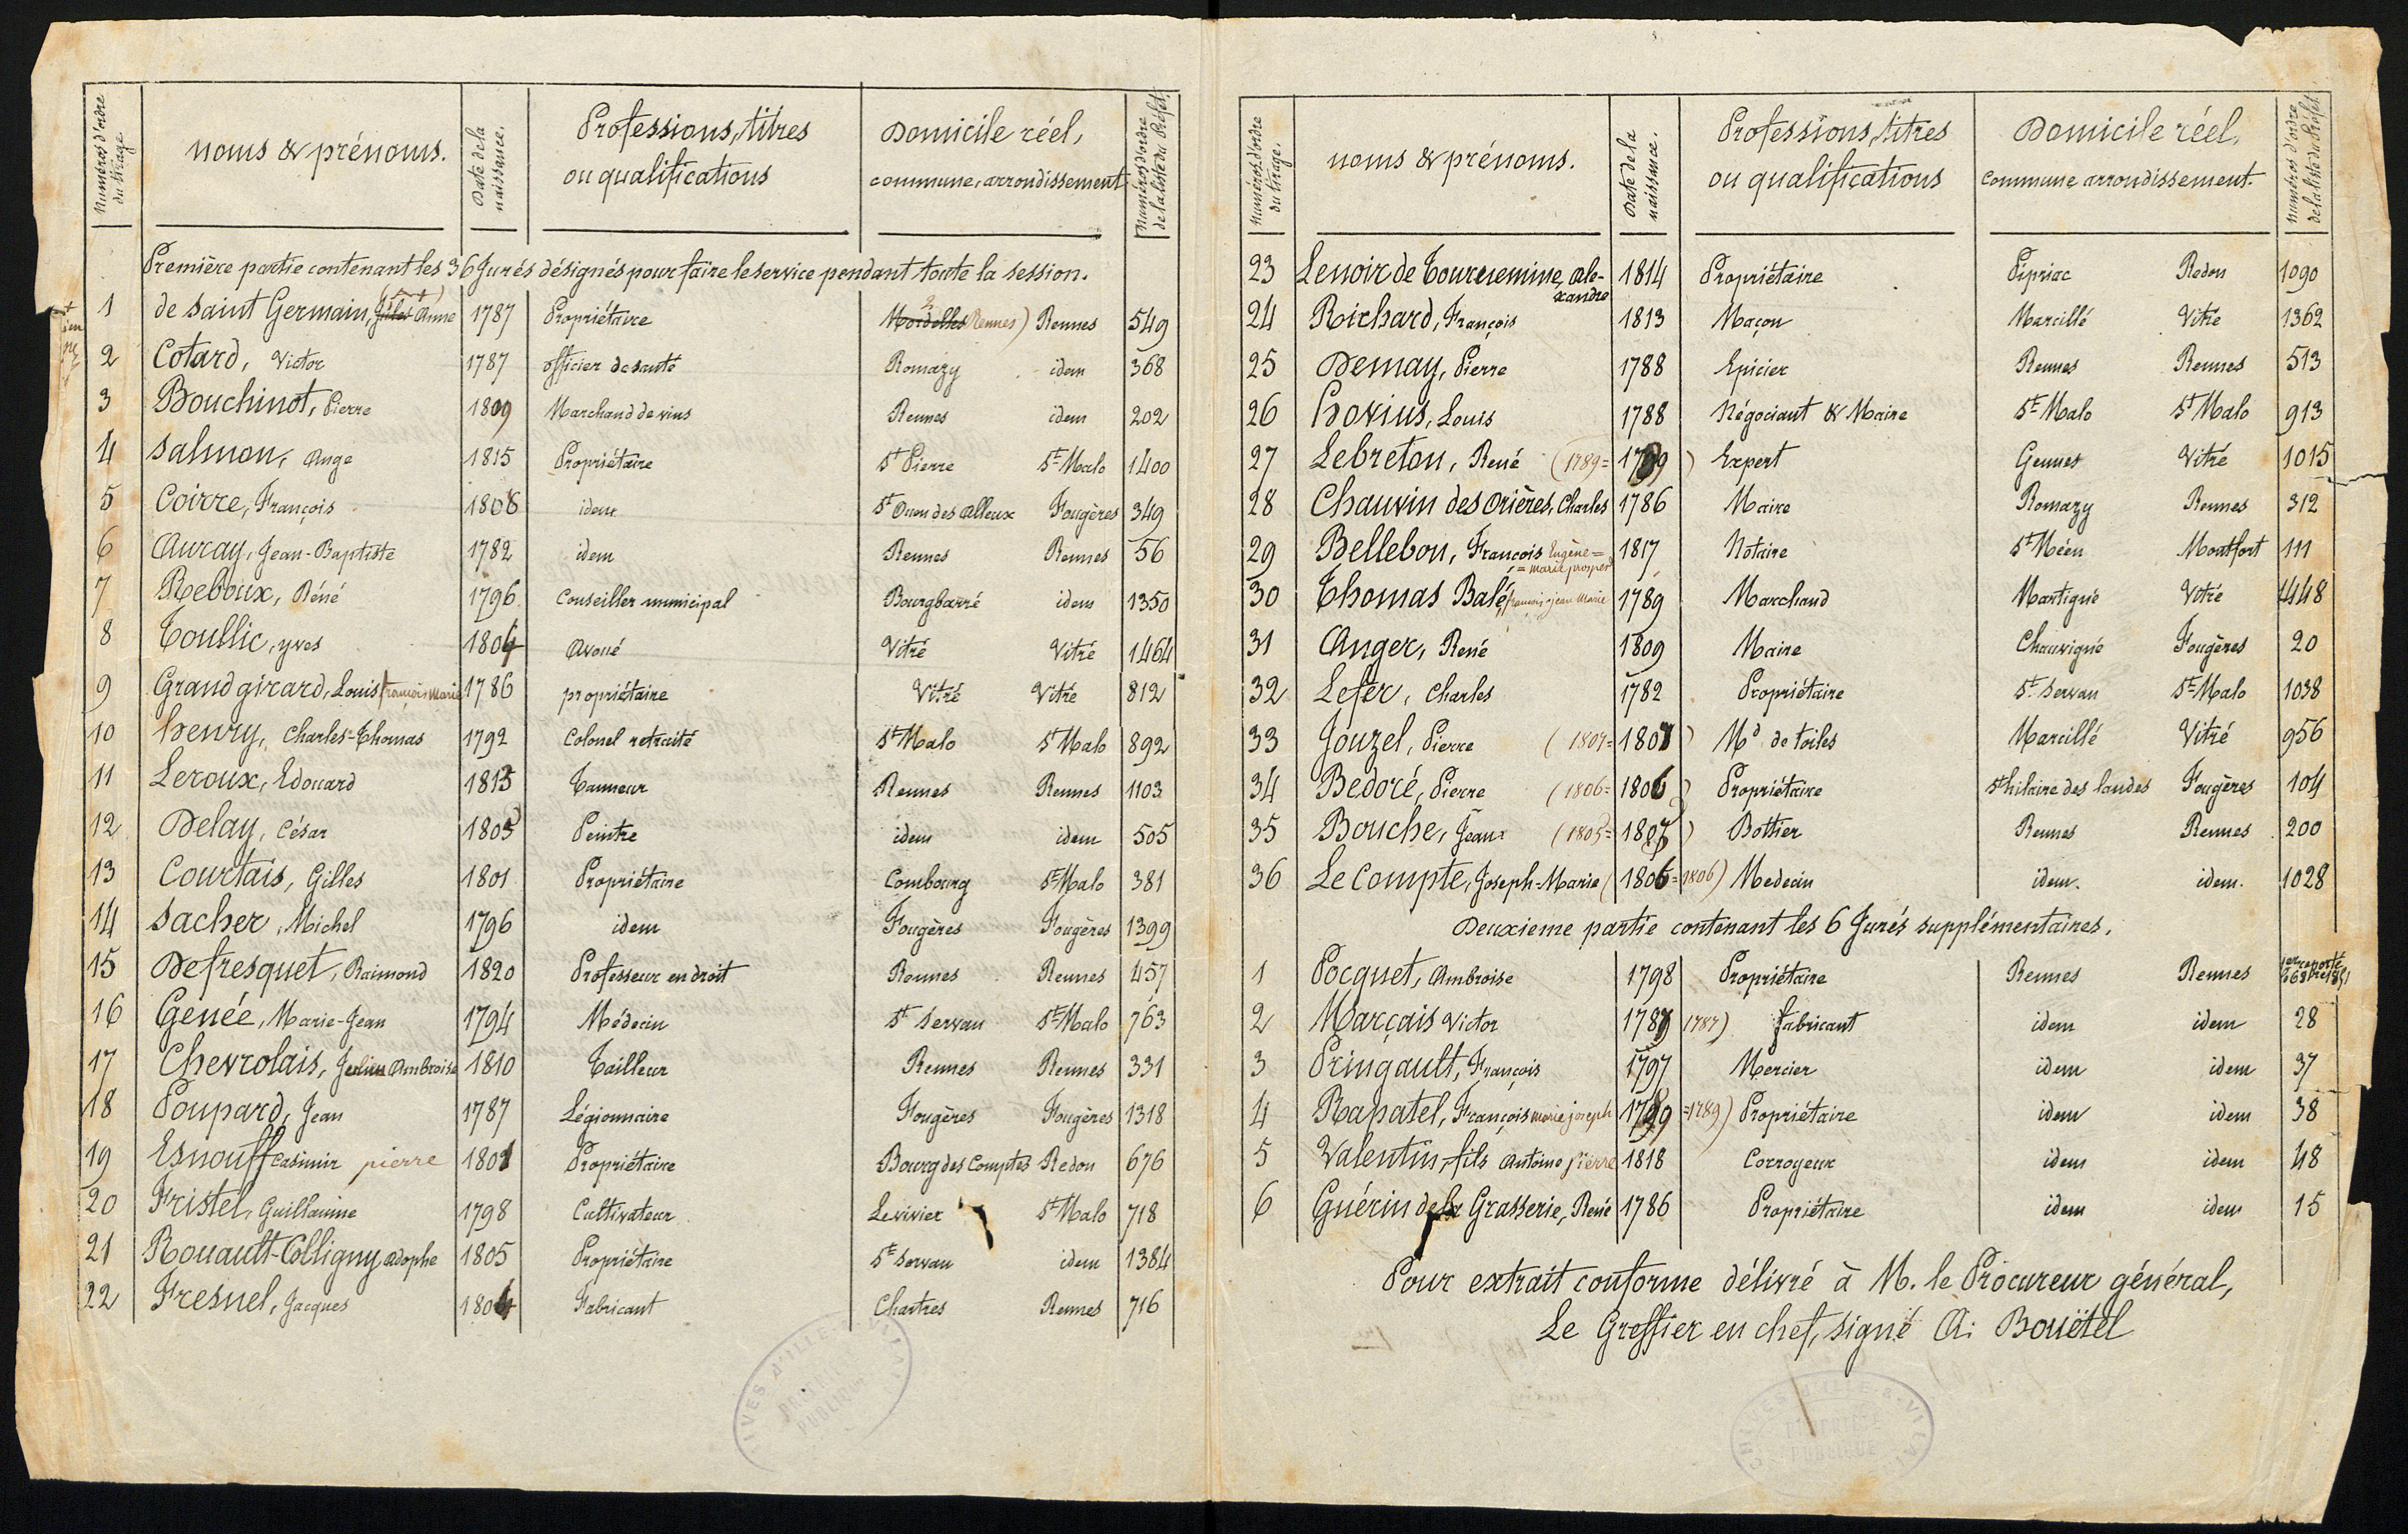 Numéros d'ordre du tirage
noms & prénoms.
Date de la naissance.
Professions, titres ou qualifications
Domicile réel, commune, arrondissement
Numéros d'ordre de la liste du Préfet.
Première partie contenant les 36 Jurés désignés pour faire le service pendant toute la session.
1 de Saint Germain, Jules Anne 1787 Propriétaire Mordelles (Rennes) Rennes 549
2 Cotard, Victor 1787 officier de santé Romazy idem 368
3 Bouchinot, Pierre 1809 Marchand de vins Rennes idem 202
4 Salmon, Ange 1815 Propriétaire St Pierre St Malo 1400
5 Coirre, François 1806 idem St Ouen des Alleux Fougères 349
6 Auray, Jean-Baptiste 1782 idem Rennes Rennes 56
7 Reboux, Réné 1796 Conseiller municipal Bourgbarré idem 1350
8 Toullic, yves 1804 Avoué Vitré Vitré 1464
9 Grandgirard, Louis françois Marie 1786 propriétaire Vitré Vitré 812
10 henry, Charles-Thomas 1792 Colonel retraité St Malo St Malo 892
11 Leroux, Edouard 1813 Tanneur Rennes Rennes 1103
12 Delay, César 1805 Peintre idem idem 505
13 Courtais, Gilles 1801 Propriétaire Combourg St Malo 381
14 Sacher, Michel 1796 idem Fougères Fougères 1399
15 Defresquet, Raimond 1820 Professeur en droit Rennes Rennes 457
16 Genée, Marie-Jean 1794 Médecin St Servan St Malo 763
17 Chevrolais, Julien Ambroise 1810 Tailleur Rennes Rennes 331
18 Poupard, Jean 1787 Légionnaire Fougères Fougères 1318
19 Esnouff Casimir pierre 1801 Propriétaire Bourg des Comptes Redon 676
20 Fristel, Guillaume 1798 Cultivateur Levivier St Malo 718
21 Rouault-Colligny Adophe 1805 Propriétaire St Servan idem 1384
22 Fresnel, Jacques 1804 Fabricant Chartres Rennes 716
Numéros d'ordre du tirage.
noms & prénoms.
Date de la naissance.
Professions, titres ou qualifications
Domicile réel, commune arrondissement.
Numéros d'ordre de la liste du Préfet.
23 Lenoir de Tournemine, Alexandre 1814 Propriétaire Pipriac Redon 1090
24 Richard, François 1813 Maçon Marcillé Vitré 1362
25 Demay, Pierre 1788 Epicier Rennes Rennes 513
26 hovius, Louis 1788 Négociant & Maire St Malo St Malo 913
27 Lebreton, René (1789= 1789) Expert Gennes Vitré 1015
28 Chauvin des Orières, Charles 1786 Maire Romazy Rennes 312
29 Bellebon, François Eugène= =marie prosper 1817 Notaire St Méen Montfort 111
30 Thomas Balé, françois-jean Marie 1789 Marchand Martigné Vitré 1448
31 Anger, René 1809 Maire Chauvigné Fougères 20
32 Lefer, Charles 1782 Propriétaire St Servan St Malo 1038
33 Jouzel, Pierre (1807= 1807) Md de toiles Marcillé Vitré 956
34 Bedoré, Pierre (1806= 1806) Propriétaire St hilaire des landes Fougères 104
35 Bouche, Jean (1805= 1805) Bottier Rennes Rennes 200
36 Le Compte, Joseph-Marie (1806=1806) Medecin idem. idem. 1028
Deuxieme partie contenant les 6 Jurés supplémentaires.
1 Pocquet, Ambroise 1798 Propriétaire Rennes Rennes
2 Marçais Victor 1787 1787) fabricant idem idem 28
3 Pringault, François 1797 Mercier idem idem 37
4 Rapatel, François marie joseph 1789 =1789) Propriétaire idem idem 38
5 Valentin, fils Antoine pierre 1818 Corroyeur idem idem 48
6 Guérin de la Grasserie, René 1786 Propriétaire idem idem 15
Pour extrait conforme délivré à M. le Procureur général,
Le Greffier en chef, signé A. Bouëtel